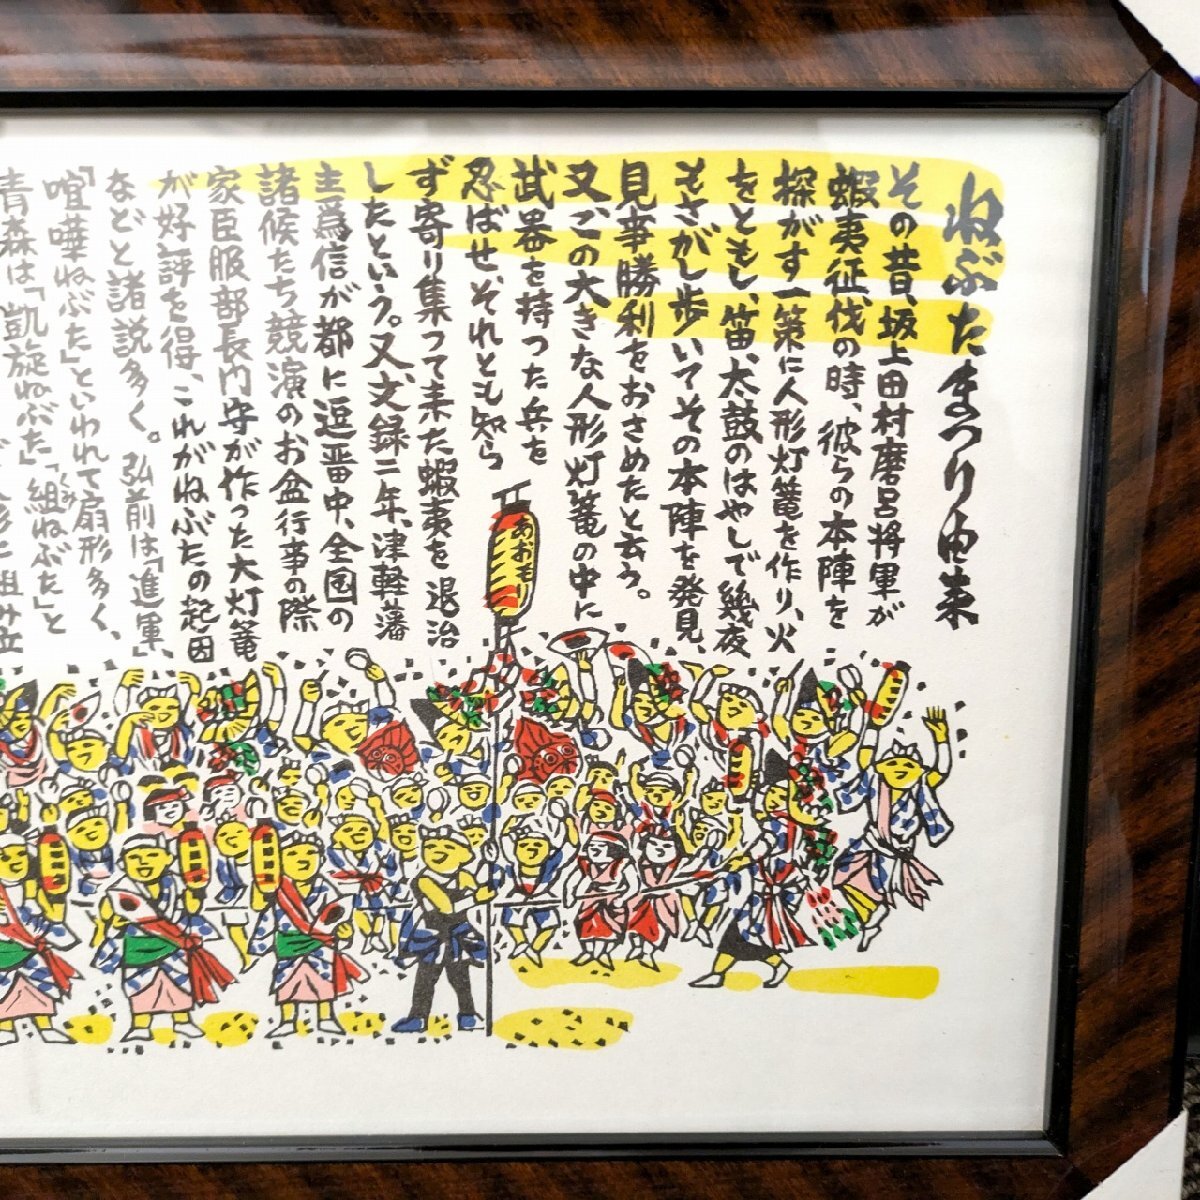 ねぶたまつり由来
その昔、坂上田村磨呂将軍が
蝦夷征伐の時、彼らの本陣を
探がす一策に人形灯篭を作り、火
をともし、笛、太鼓のはやしで幾夜
もさがし歩いてその本陣を発見、
見事勝利をおさめたと云う。
又、この大きな人形灯篭の中に
武器を持った兵を
忍ばせ、それとも知ら
ず寄り集って来た蝦夷を退治
したという。又、文録二年、津軽藩
主為信が都に逗畄中、全国の
諸候たち競演のお盆行事の際
家臣服部長門守が作った大灯篭
が好評を得、これがねぶたの起因
などと諸説多く。弘前は「進軍」
「喧嘩ねぶた」といわれて扇形多く、
青森は「凱旋ねぶた」「組ねぶた」と
くみ
あおもり